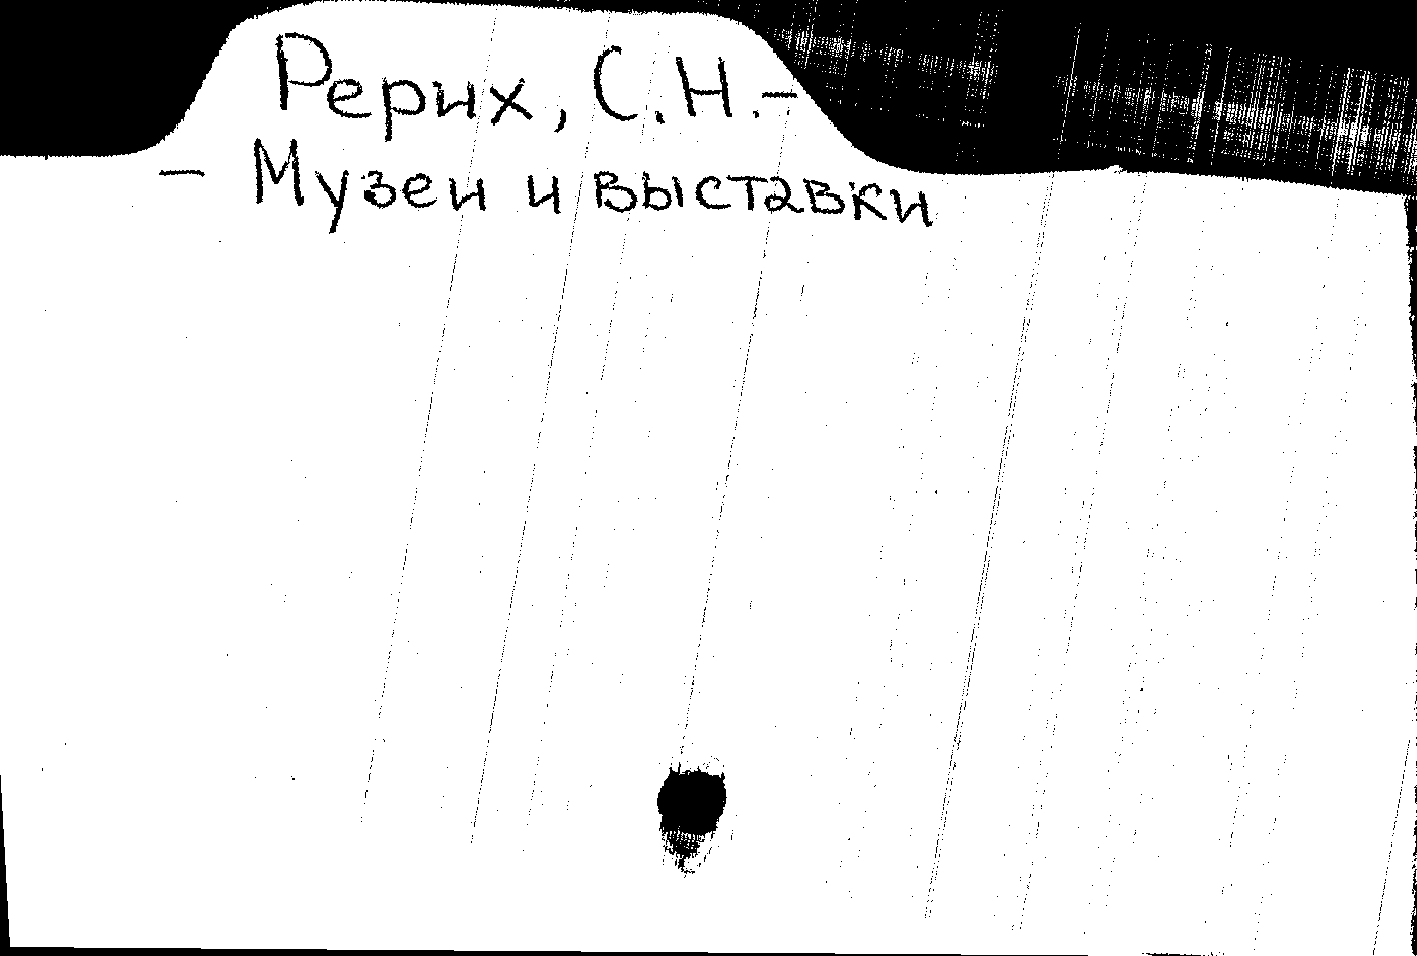 Рерих, С.Н.-
- Музеи и выставки